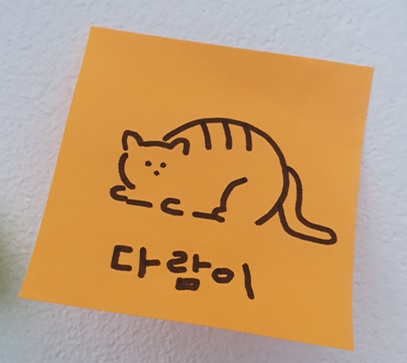 다람이